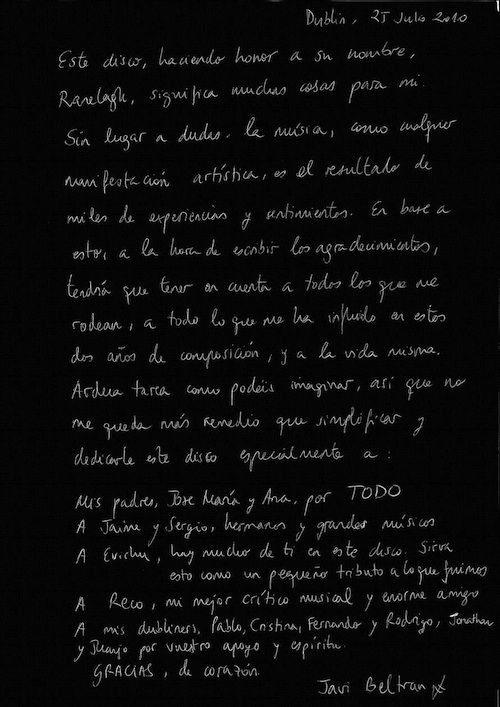 Dublin, 25 Julio 2010
Este disco, haciendo honor a su nombre,
Ranelagh, significa muchas cosas para mi.
Sin lugar a dudas, la música, como cualquier
manifestación artística, es el resultado de
miles de experiencias y sentimientos. En base a
esto, a la hora de escribir los agradecimientos,
tendría que tener en cuenta a todos los que me
rodean, a todo lo que me ha influido en estos
dos años de composición, y a la vida misma.
Ardua tarea como podéis imaginar, así que no
me queda más remedio que simplificar y
dedicarle este disco especialmente a:
Mis padres, Jose María y Ana, por TODO
A Jaime y Sergio, hermanos y grandes músicos
A Evichu, hay mucho de ti en este disco. Sirva
esto como un pequeño tributo a lo que fuimos
A Reco, mi mejor crítico musical y enorme amigo
A mis dubliners, Pablo, Cristina, Fernando y Rodrigo, Jonathan
y Juanjo por vuestro apoyo y espíritu.
GRACIAS, de corazón.
Javi Beltran